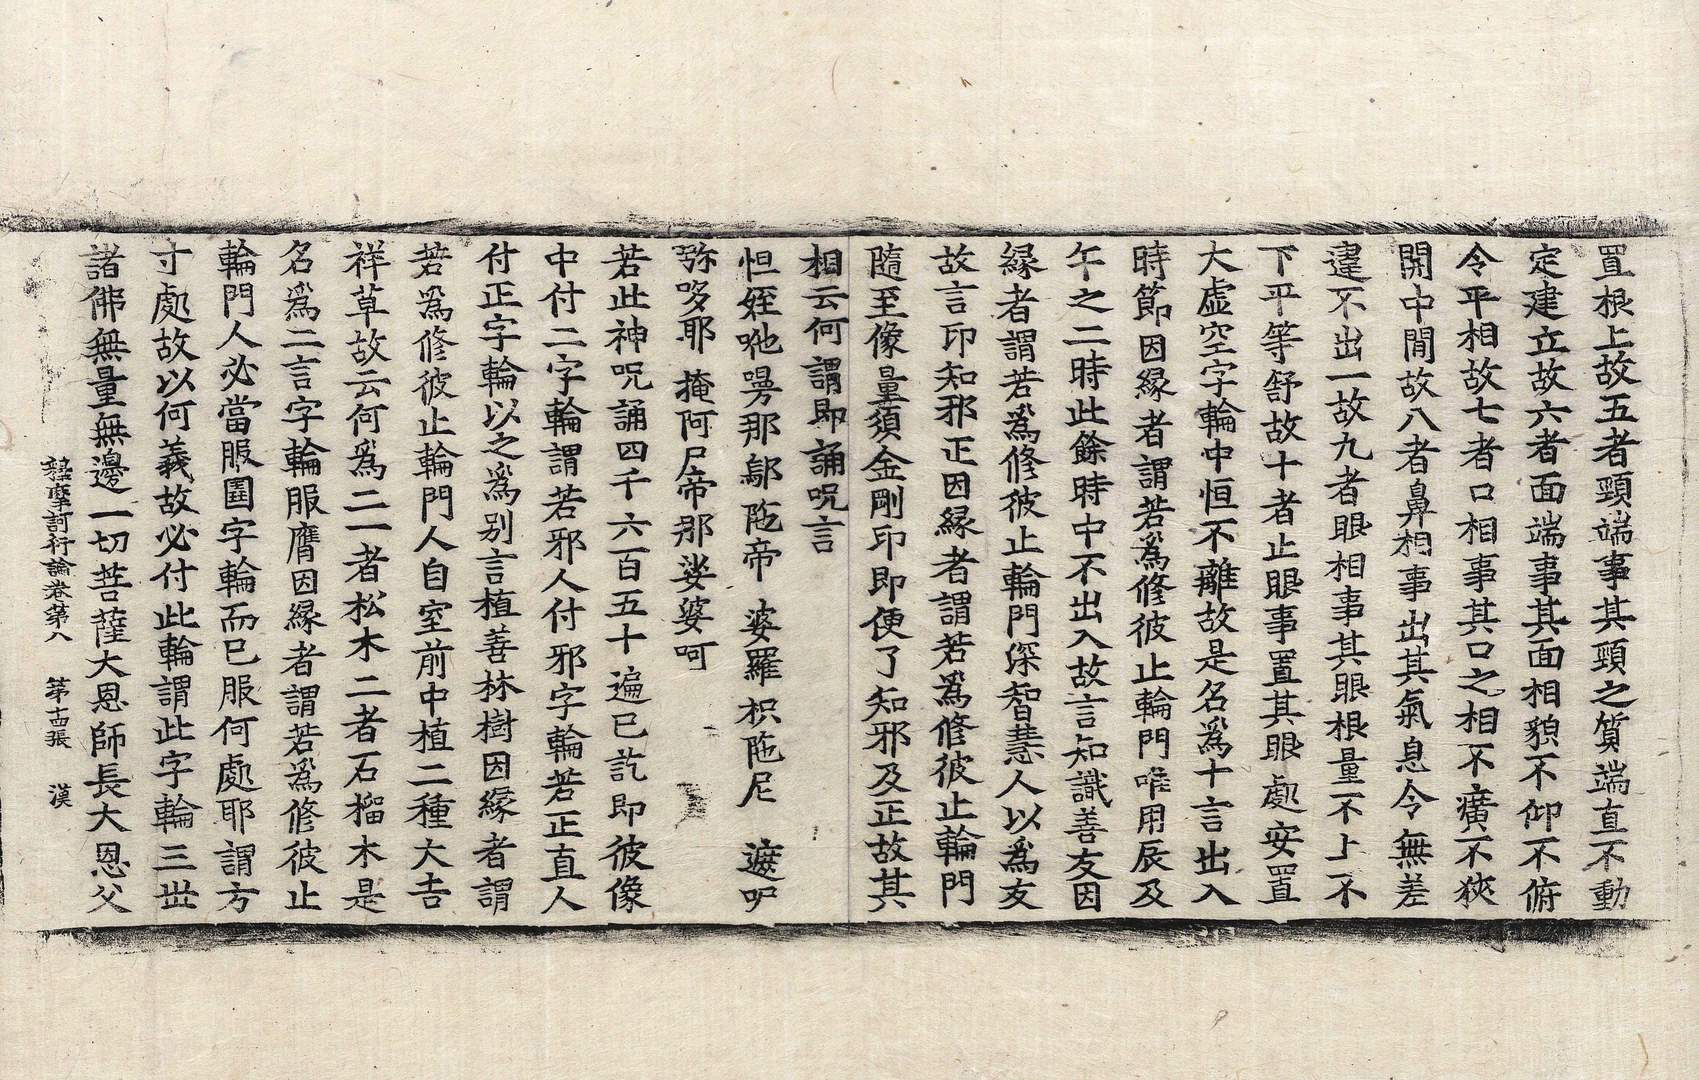 置根上故五者頸端事其頸之質端直不動
定建立故六者面端事其面相貌不仰不俯
令平相故七者口相事其口之相不癀不狹
開中閒故八者鼻相事出其氣息令無差
違不出一故九者眼相事其眼根量不上不
下平等舒故十者止眼事置其眼處安置
大虛空字輪中恒不離故是名爲十言出入
時節因緣者謂若爲修彼止輪門唯用辰及
午之二時此餘時中不出入故言知識善友因
緣者謂若爲修彼止輪門深智慧人以爲友
故言印知邪正因緣者謂若爲修彼止輪門
隨至像量須金剛印即便了知邪及正故其
相云何謂即誦呪言
怛姪咃 那鄔陁帝 婆羅枳陁尼
弥哆耶 掩阿尸帝那娑婆呵
若此神呪誦四千六百五十遍已訖即彼像
中付二字輪謂若邪人付邪字輪若正直人
付正字輪以之爲別言植善林樹因緣者謂
若爲修彼止輪門人自室前中植二種大吉
祥草故云何爲二一者松木二者石榴木是
名爲二言字輪服膺因緣者謂若爲修彼止
輪門人必當服圁字輪而已服何處耶謂方
寸處故以何義故必付此輪謂此字輪三世
諸佛無量無邊一切菩薩大恩師長大恩父
釋摩訶衍論卷第八 第十四張 漢